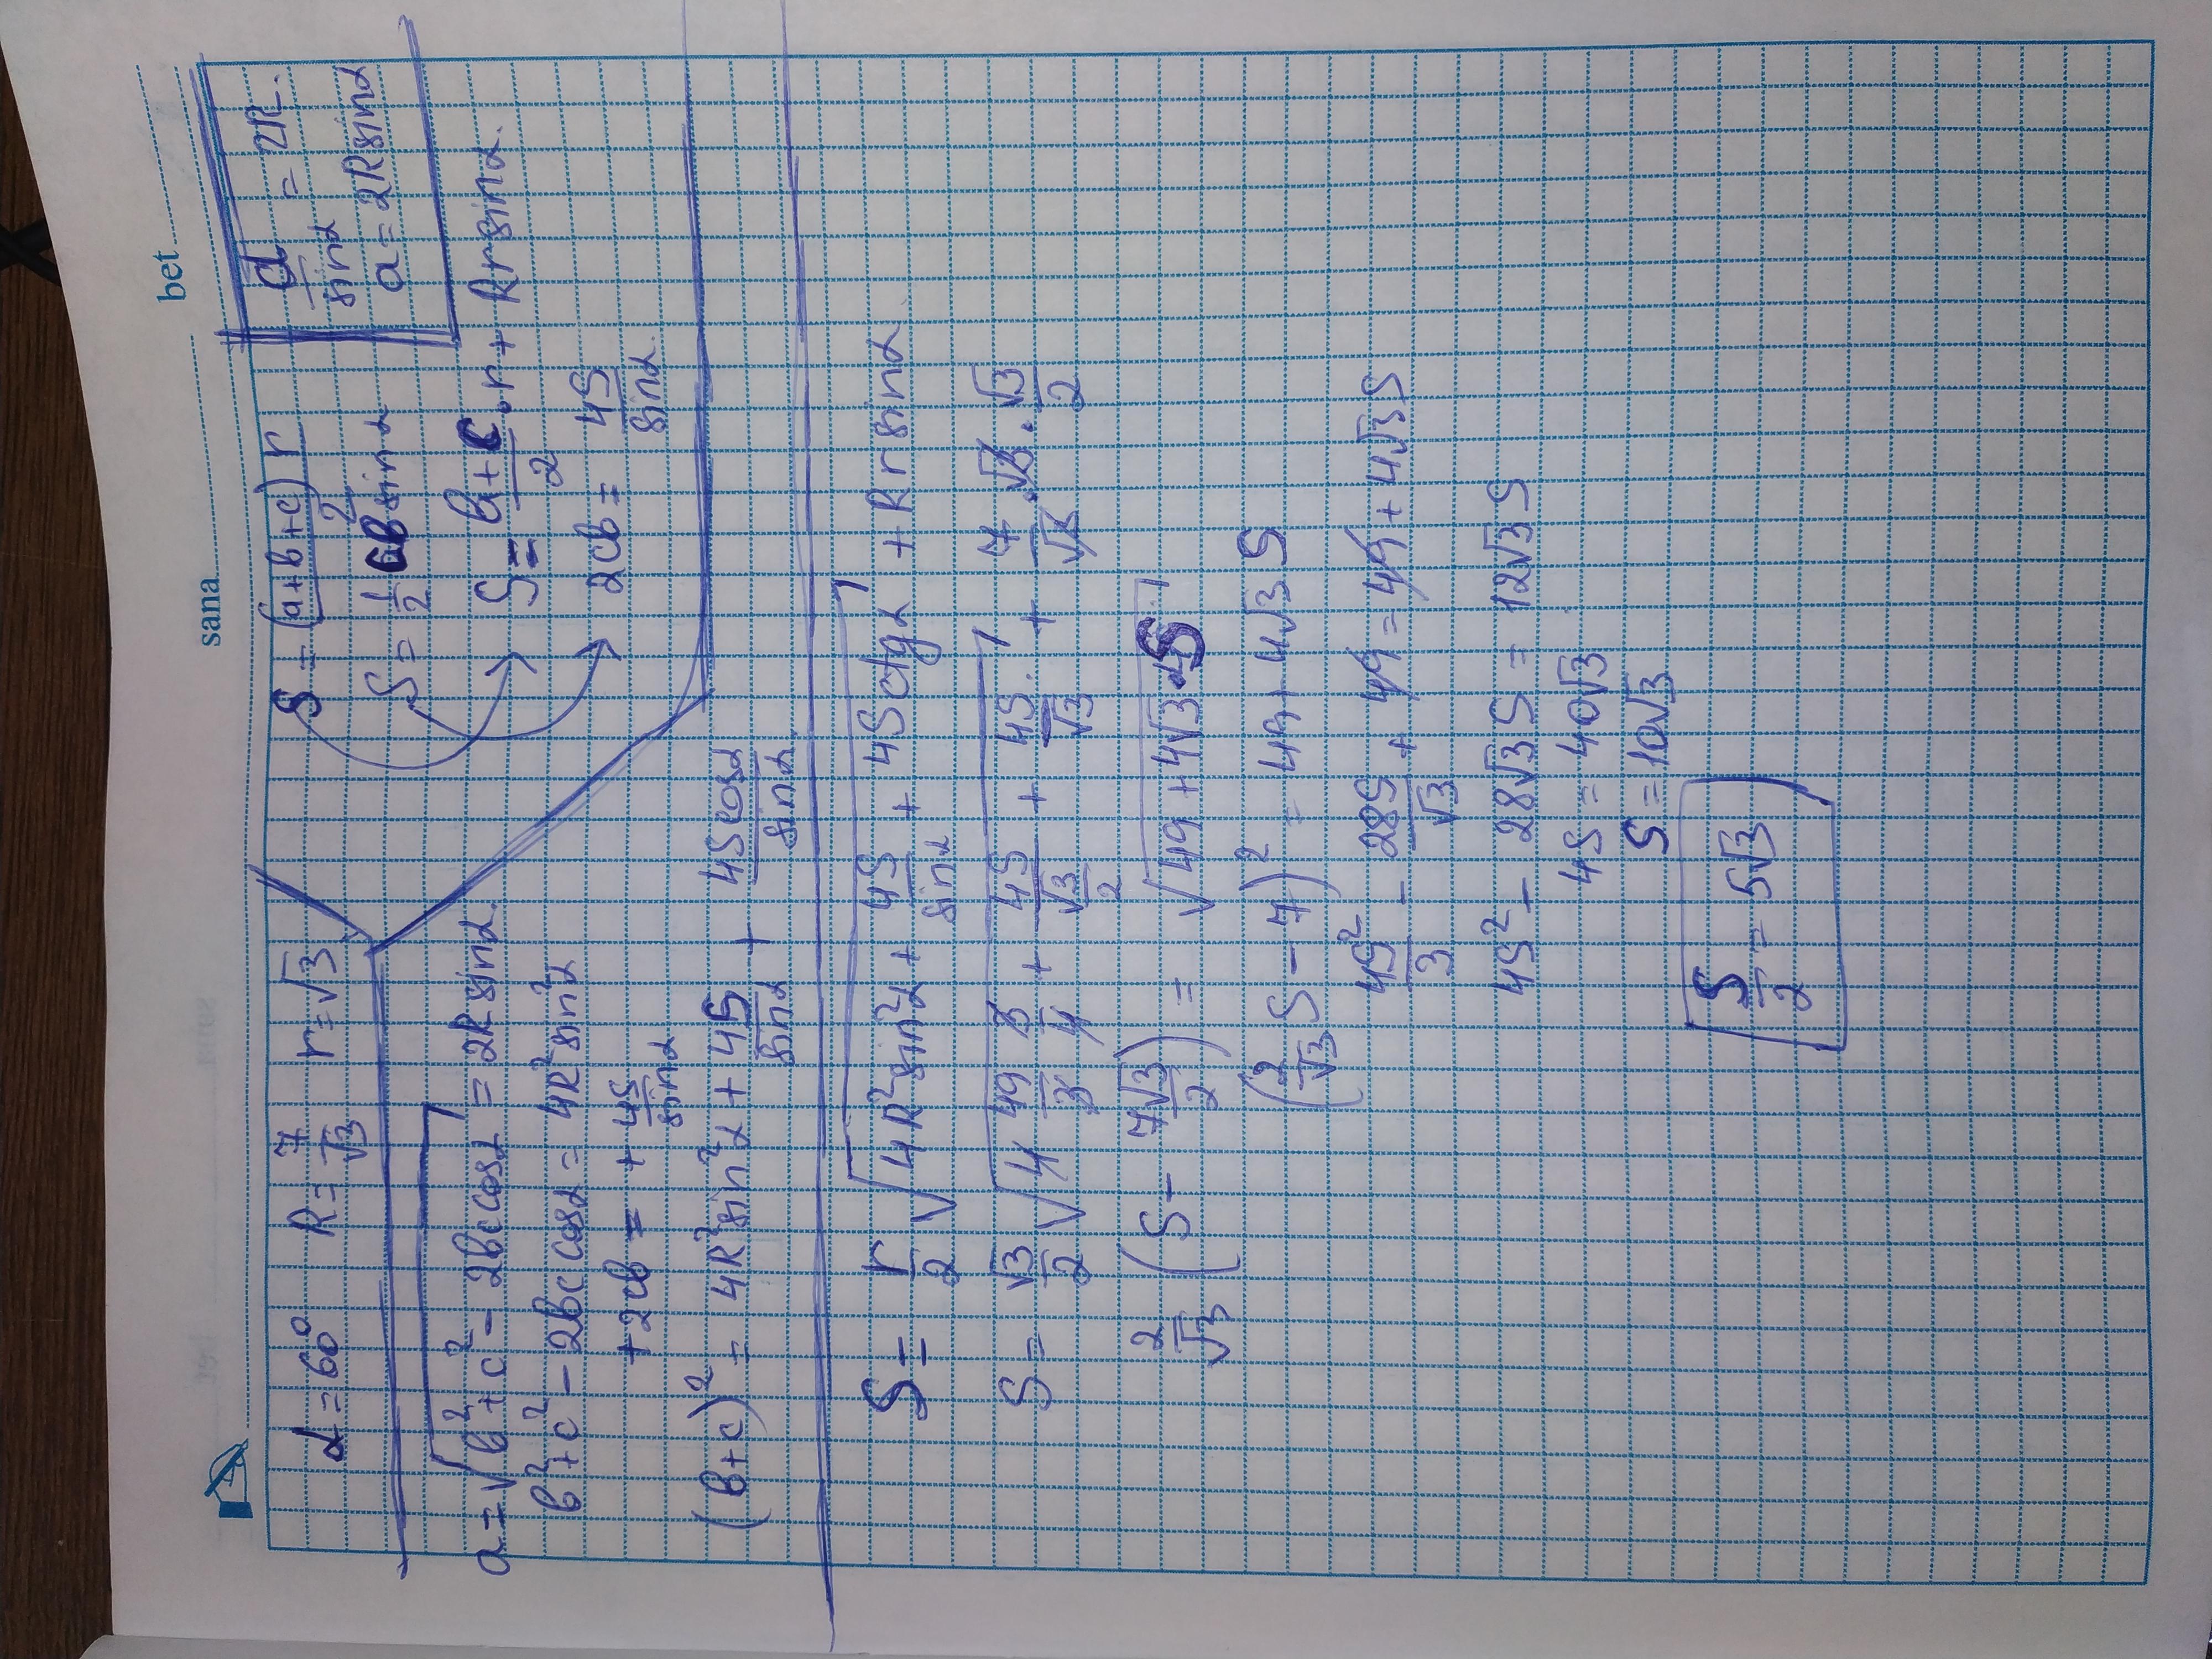 sana bet
α = 60° R = 7/√3 r = √3
S = (a+b+c)/2 r
S = 1/2 cb sinα
a/sinα = 2R.
a = 2R sinα
S = b+c/2 · r + Rr sinα.
2cb = 4S/sinα.
a = √(b²+c² - 2bc cosα) = 2R sinα.
b²+c² - 2bc cosα = 4R² sin²α
+2cb = + 4S/sinα
(b+c)² = 4R² sin²α + 4S/sinα + 4S cosα/sinα.
S = r/2 √(4R² sin²α + 4S/sinα + 4S ctgα) + Rr sinα
S = √3/2 √(4 49/3 3/4 + 4S/(√3/2) + 4S/√3) + 7/√3 · √3 · √3/2
2/√3 (S - 7√3/2) = √(49 + 4√3 S)
(2/√3 S - 7)² = 49 + 4√3 S
4S²/3 - 28S/√3 + 49 = 49 + 4√3 S
4S² - 28√3 S = 12√3 S
4S = 40√3
S = 10√3
S/2 = 5√3